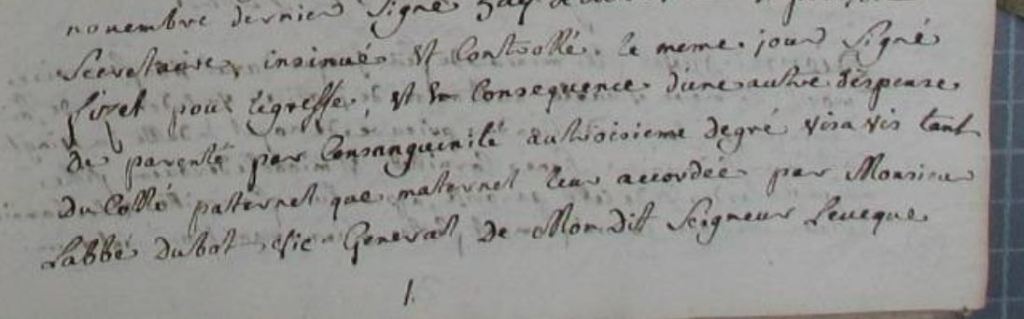 novembre dernier Signé
Secretaire, insinué et Controllé le meme jour Signé
pour legreffe, et En Consequence d'une autre dispense
de parenté par Consanguinité autroisieme degré vis a vis tant
du Cotté paternel que maternel leur accordée par Monsieur
Labbé dubot vic General, de Mon Dit Seigneur Leveque
1.